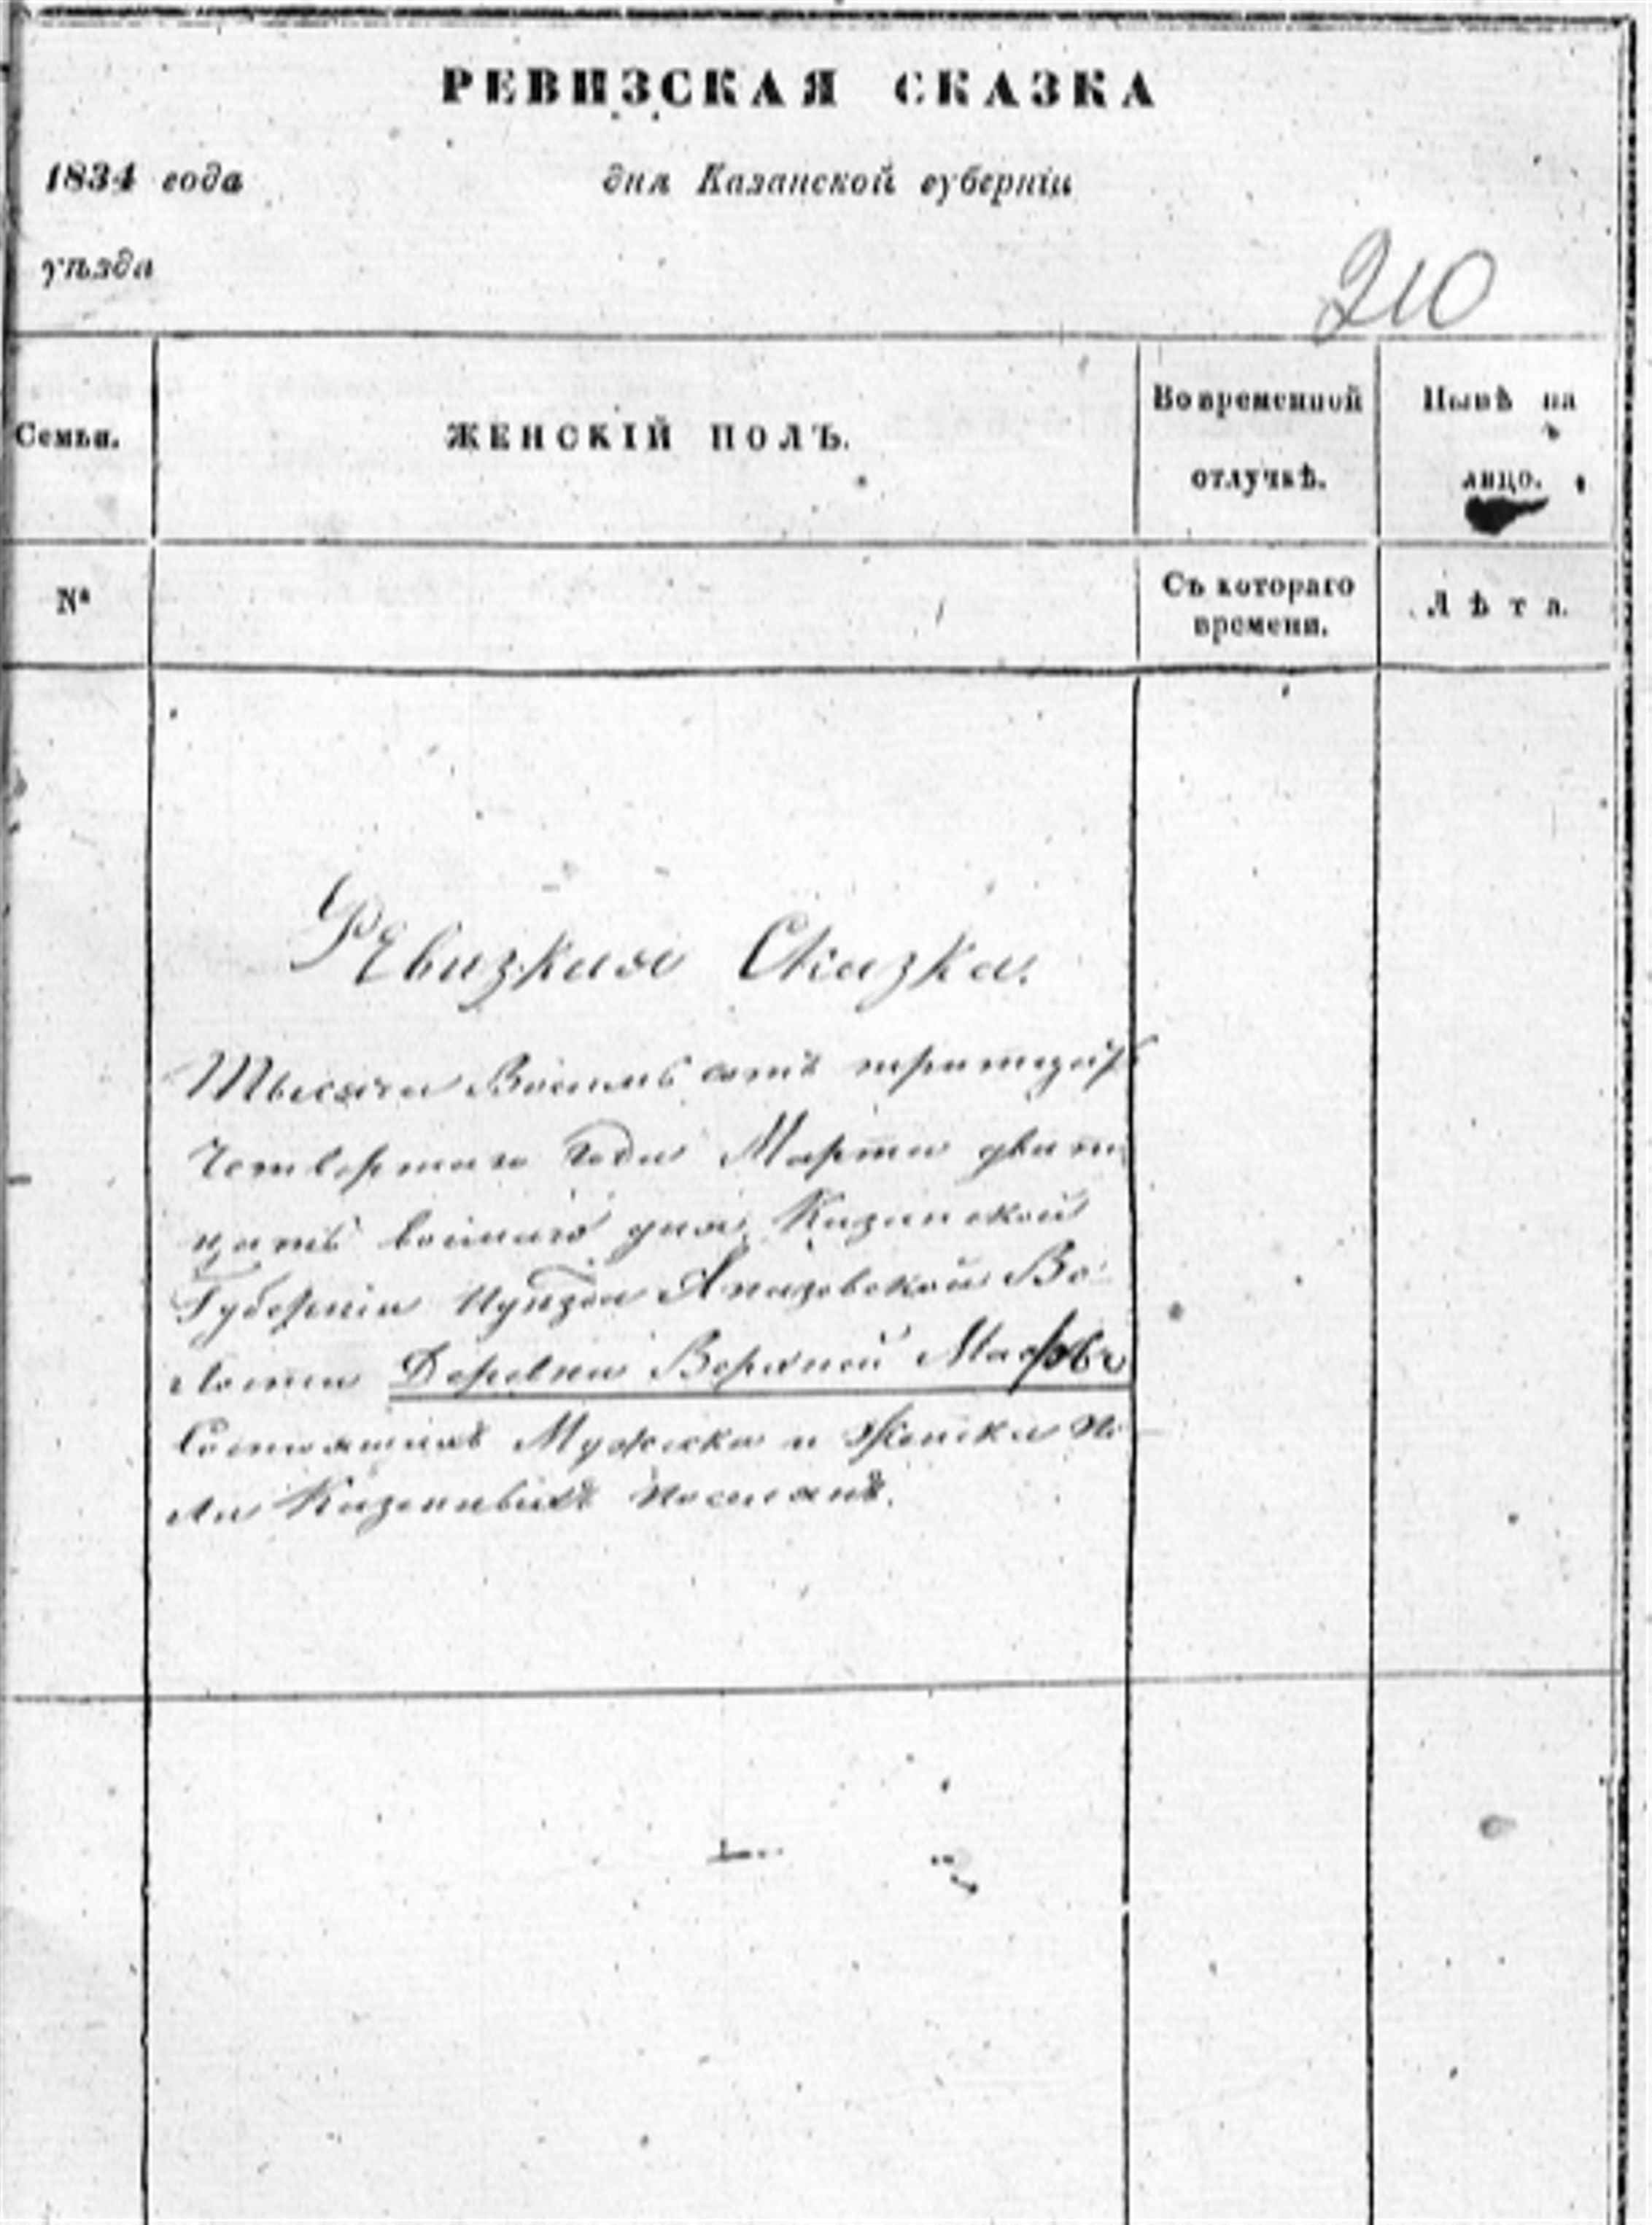 РЕВИЗСКАЯ СКАЗКА
1834 года дня Казанской губерніи
уѣзда
210
Семьи. ЖЕНСКІЙ ПОЛЪ. Во временной отлучкѣ. Нынѣ на лицо.
№ Съ котораго времени. Лѣта.
Ревизкая Сказка.
Тысяча Восемь сотъ тритцать
Четвертаго года Марта дват
цать восмаго дня Казанской
Губерніи уѣзда Апазовской Во
лости Деревни Верхней
Состоящихъ Мужска и Женска по
ла Казенныхъ поселянъ.